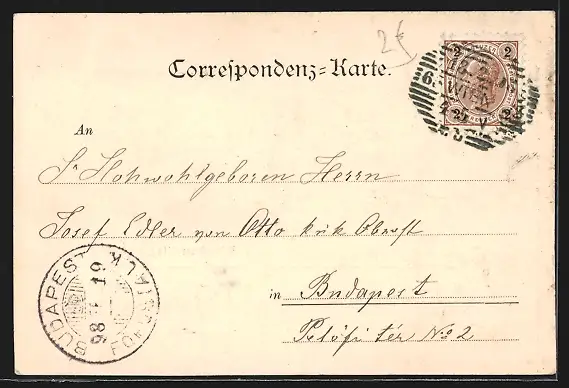 2€
Correspondenz-Karte.
2 2
6.
WIEN
2 2
An
Sr Hohwohlgeboren Herrn
Josef Edler von Otto k u k Oberst
in Budapest
Petöfi tér No 2
BUDAPEST
98 19
FŐPOSTA